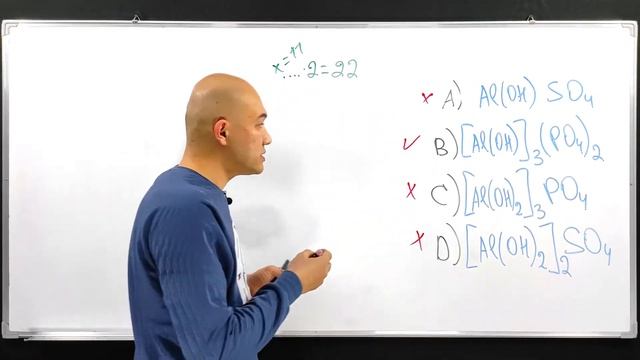 x=11
....·2=22
× A) Al(OH) SO₄
✓ B) [Al(OH)]₃(PO₄)₂
× C) [Al(OH)₂]₃PO₄
× D) [Al(OH)₂]₂SO₄